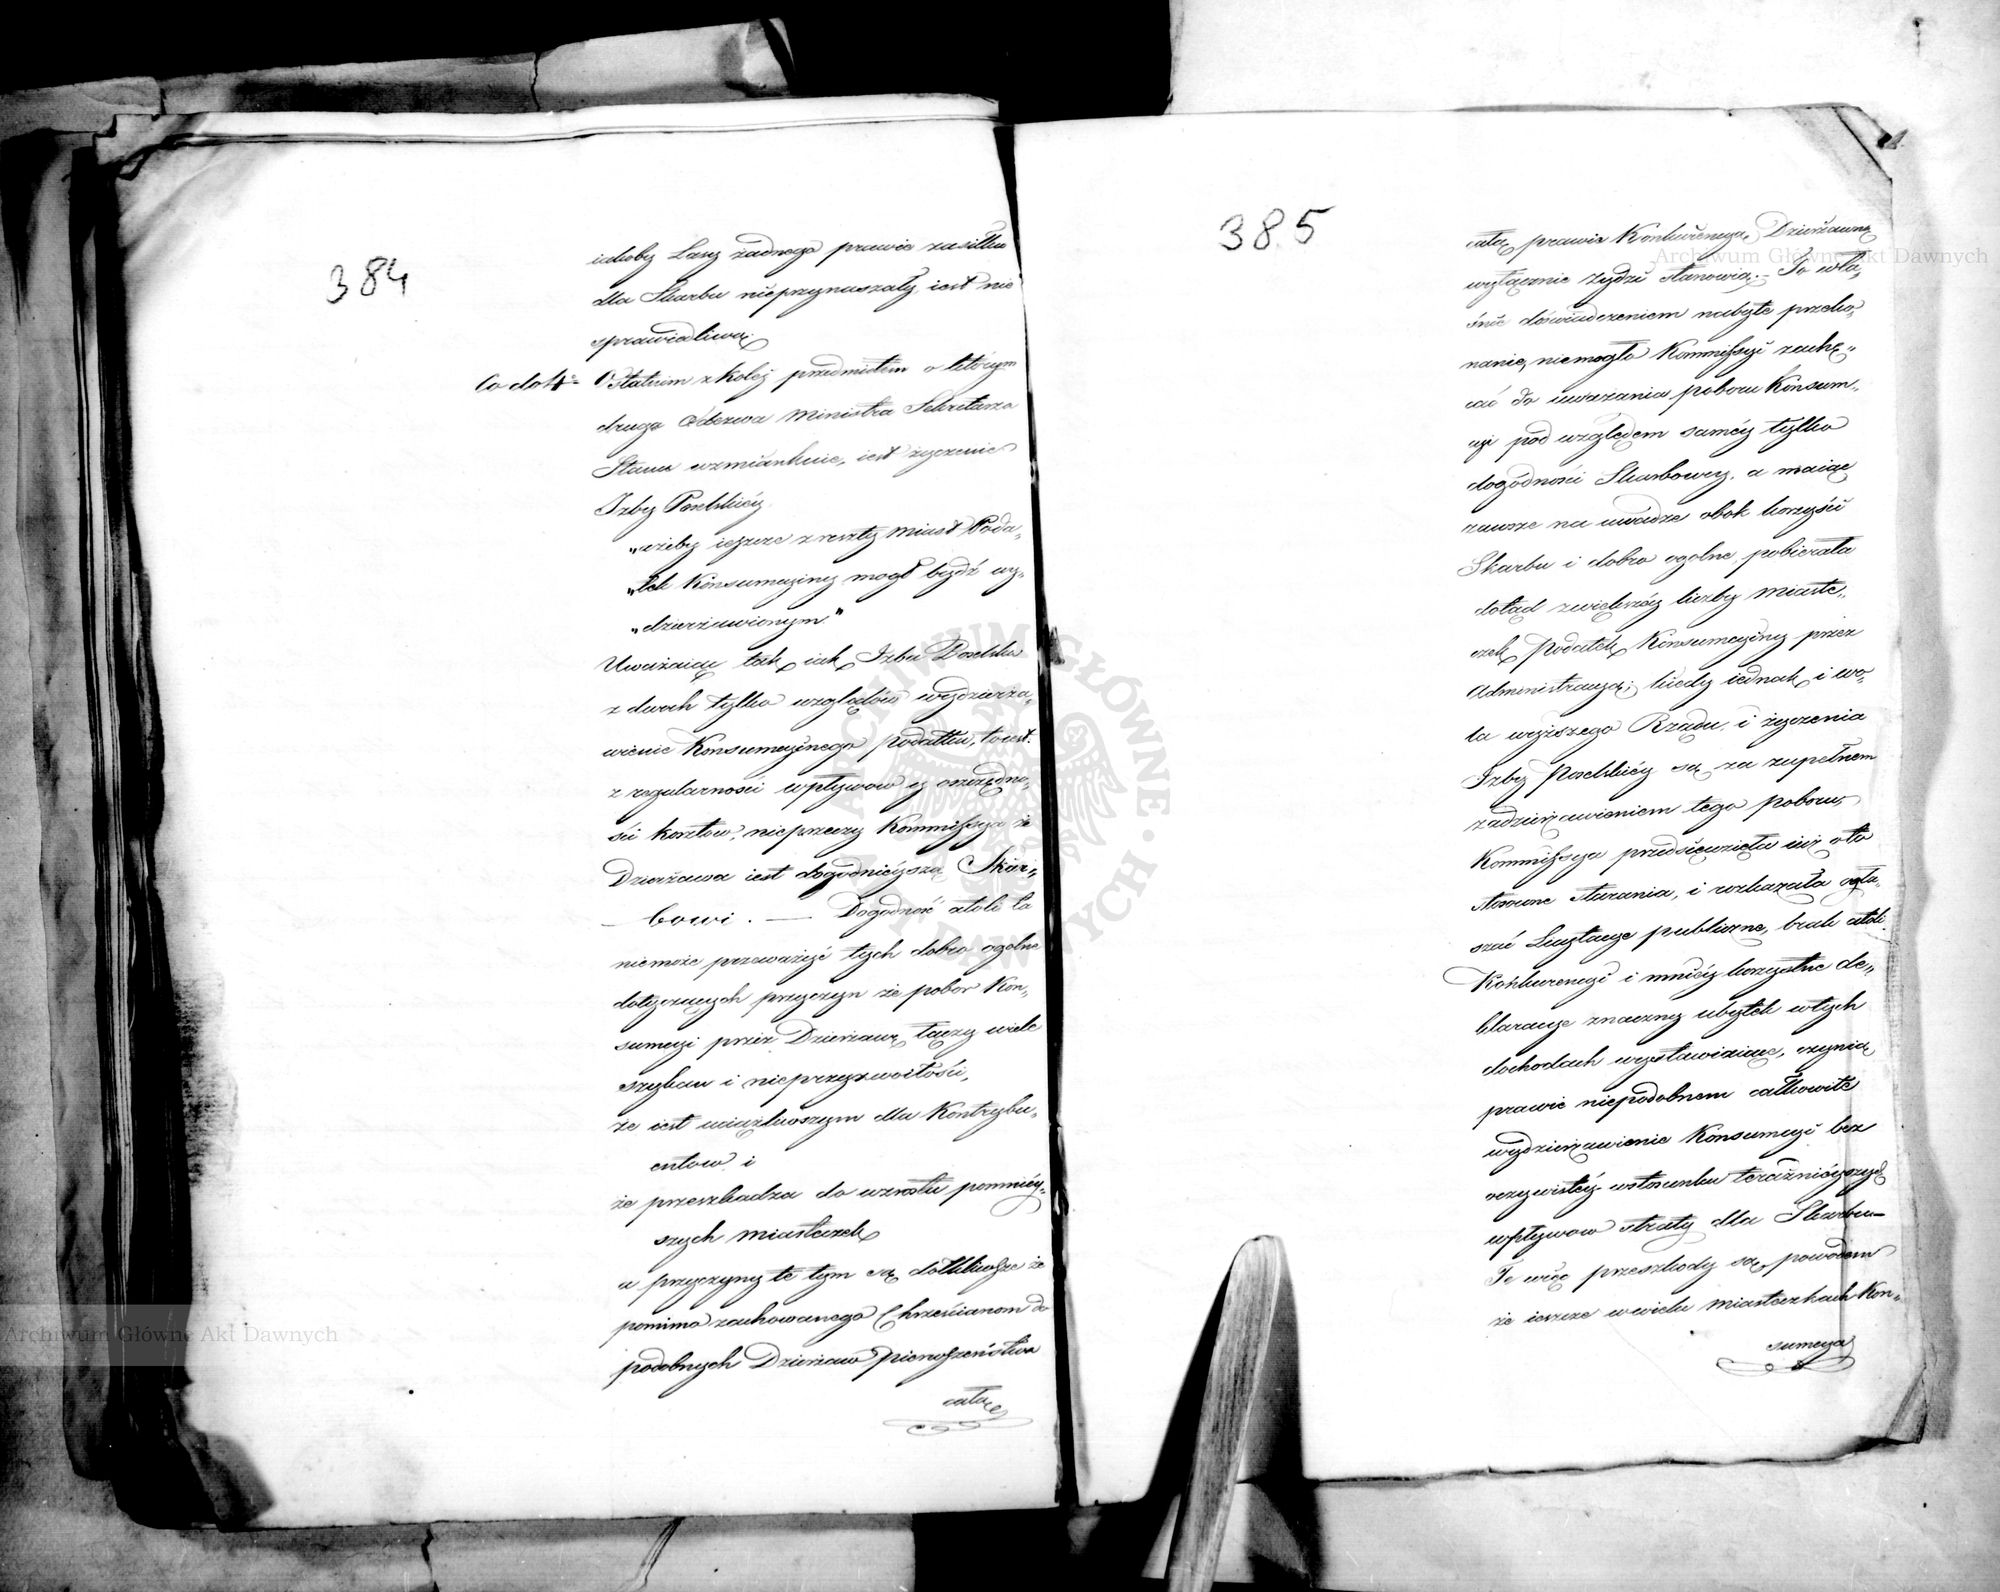 384
iakoby Lasy żadnego prawie zasiłku
dla Skarbu nieprzynaszały, iest nie
sprawiedliwą.
Co do 4º Ostatnim z kolei przedmiotem o którym
druga Odezwa Ministra Sekretarza
Stanu wzmiankuie, iest życzenie
Izby Poselskiéy
„ażeby ieszcze z reszty Miast Poda„
„tek Konsumcyiny mogł bydź wy„
„dzierżawionym"
Uważaiąc tak, iak Izba Poselska
z dwoch tylko względów wydzierża„
wienie Konsumcyinego podatku, to iest:
z regularności wpływow y oszczędno„
ści kosztow, nieprzeczy Kommissya że
Dzierżawa iest dogodnieysza Skar„
bowi. — Dogodność atoli ta
niemoże przeważyć tych dobro ogolne
dotyczących przyczyn że pobor Kon„
sumcyi przez Dzierżawę łączy wiele
szykan i nieprzyzwoitości,
że iest uciążliwszym dla Kontrybu„
entow i
że przeszkadza do wzrostu pomniéy„
szych miasteczek
a przyczyny te tym są dotkliwsze że
pomimo zachowanego Chrześcianom do
podobnych Dzierżaw pierwszeństwa
całą
385
całą prawie Konkurencyą Dzierżawną
wyłącznie Żydzi stanowią. — To wła„
śnie doświadczeniem nabyte przeko„
nanie, niemogło Kommissyi zachę„
cać do uważania poboru Konsum„
cyi pod względem saméy tylko
dogodności Skarbowey, a maiąc
zawsze na uwadze obok korzyści
Skarbu i dobro ogolne, pobierała
dotąd z większéy liczby Miaste„
czek Podatek Konsumcyiny przez
Administracyą; kiedy iednak i wo„
la wyższego Rządu, i życzenia
Izby Poselskiéy są za zupełnem
zadzierżawieniem tego poboru,
Kommissya przedsięwzięła iuż oto
stosowne starania, i rozkazała ogła„
szać Licytacye publiczne, brak atoli
Konkurencyi i mniéy korzystne de„
klaracye znaczny ubytek w tych
dochodach wystawiaiące, czynią
prawie niepodobnem całkowite
wydzierżawienie Konsumcyi bez
oczywistéy w stosunku teraźnieyszych
wpływow straty dla Skarbu —
Te więc przeszkody są powodem
że ieszcze w wielu miasteczkach Kon„
sumcya